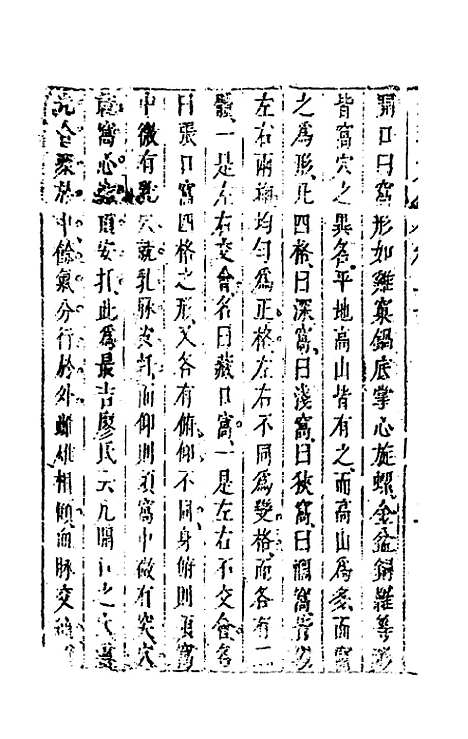 開口曰窩形如雞窠鍋底掌心旋螺金盆銅羅等
皆窩穴之異名平地高山皆有之而高山爲多面窩
之爲形此四格曰深窩曰淺窩曰狹窩曰濶窩皆
左右兩均均勻爲正格左右不同爲變格而各有二
體一是左右交會名曰藏口窩一是左右不交會名
曰張口窩四格之形又各有俯仰不同身俯則須窩
中微有乳穴就乳脉扦而仰則須窩中微有突穴
就窩心頂安扦此爲最吉廖氏云凡開口之穴
聚於中餘氣分行於外雌雄相顧血脉交